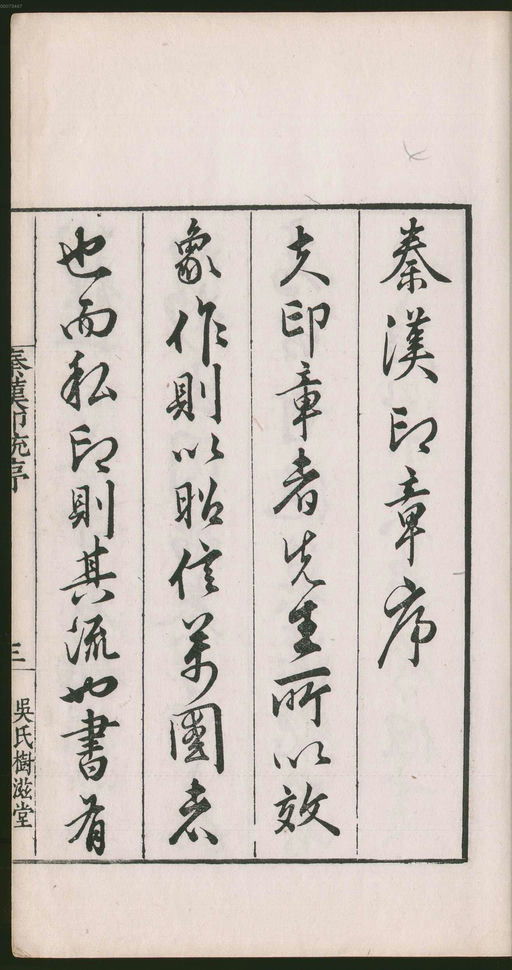 秦漢印章序
夫印章者先王所以效
象作則以昭信萬國者
也而私印則其流也書有
秦漢印統序
三
吳氏樹滋堂